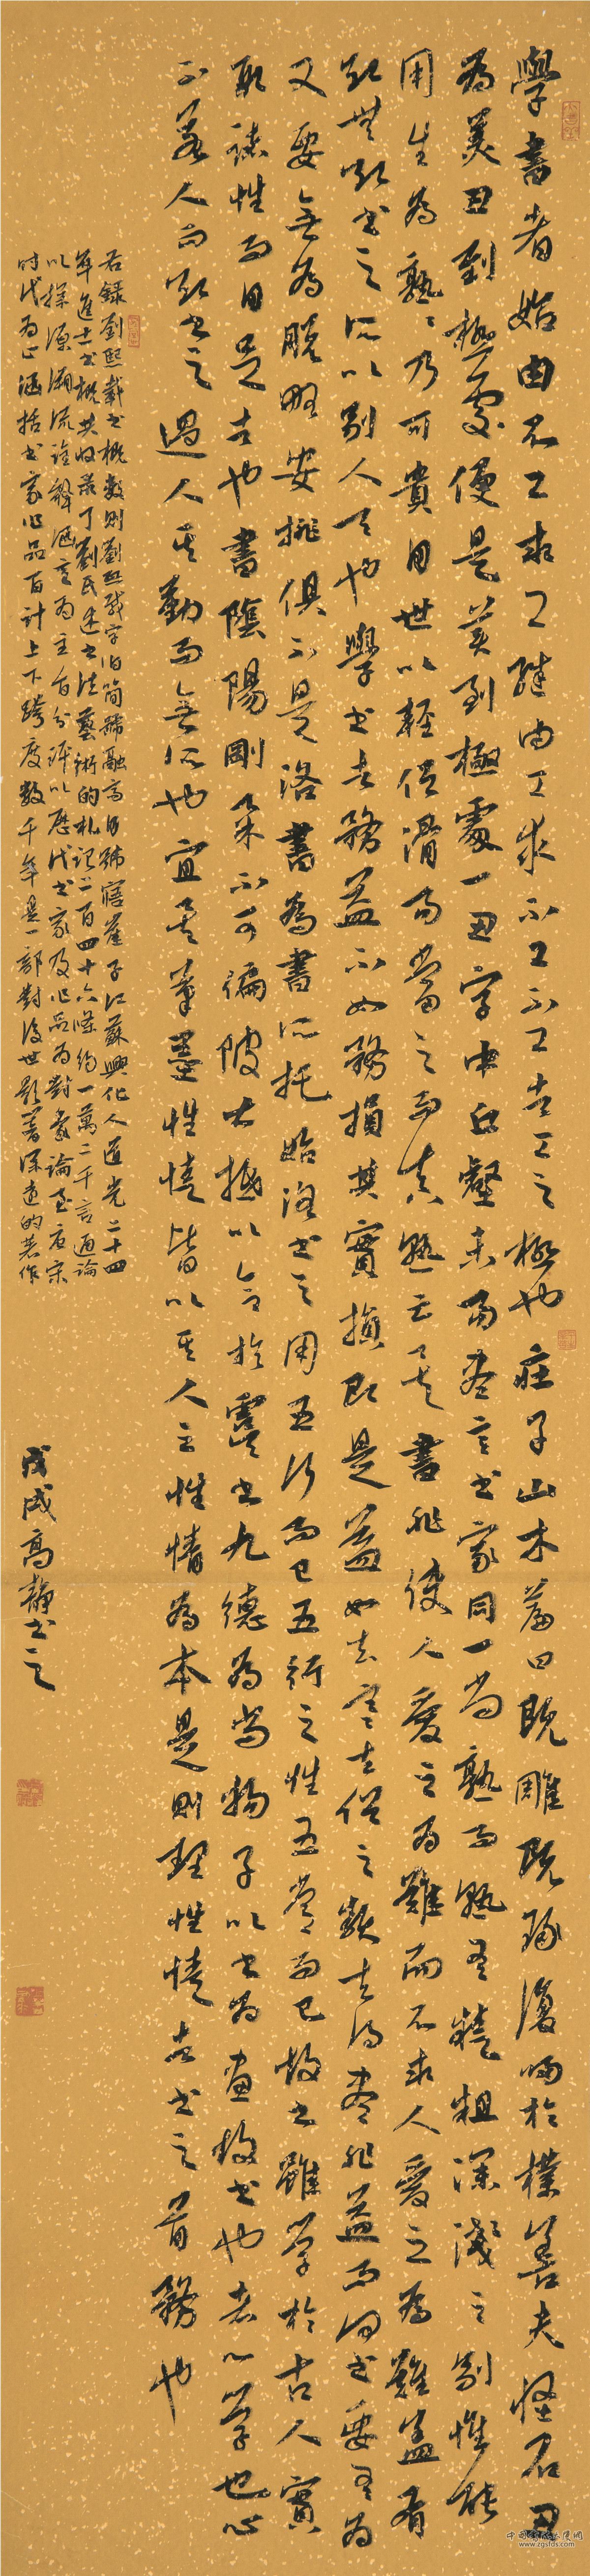 學書者始由不工求工繼由工求不工不工者工之極也莊子山木篇曰既雕既琢復歸於樸善夫怪石以醜
為美醜到極處便是美到極處一丑字中丘壑未易盡言書家同一尚熟而熟有精粗深淺之別惟能
用生為熟熟乃可貴自世以輕俗滑易當之而真熟亡矣書非使人愛之為難而不求人愛之為難蓋有
欲無欲書之所以別人天也學書者務益不如務損其實損即是益如去寒去俗之類去得盡非益而何書要有為
又要無為脫略安排俱不是洛書為書所托始洛書之用五行而已五行之性五常而已故書雖學於古人實
取諸性而自足者也書陰陽剛柔不可偏陂大抵以合於虞書九德為尚揚子以書為心畫故書也者心學也心
不若人而欲書之過人其勤而無所也宜矣筆墨性情皆以其人之性情為本是則理性情者書之首務也
右録劉熙載書概數則劉熙載字伯簡號融齋自號寤崖子江蘇興化人道光二十四
年進士書概共收录了劉氏述書法藝術的札記二百四十六條約一萬二千言通論
以探源溯流詮釋涵意為主旨分評以歷代書家及作品為對象論至唐宋
时代為止涵括書家作品百計上下跨度數千年是一部對後世影響深遠的著作
戊戌高靜書之
中国硬笔书法网
www.zgsfds.com